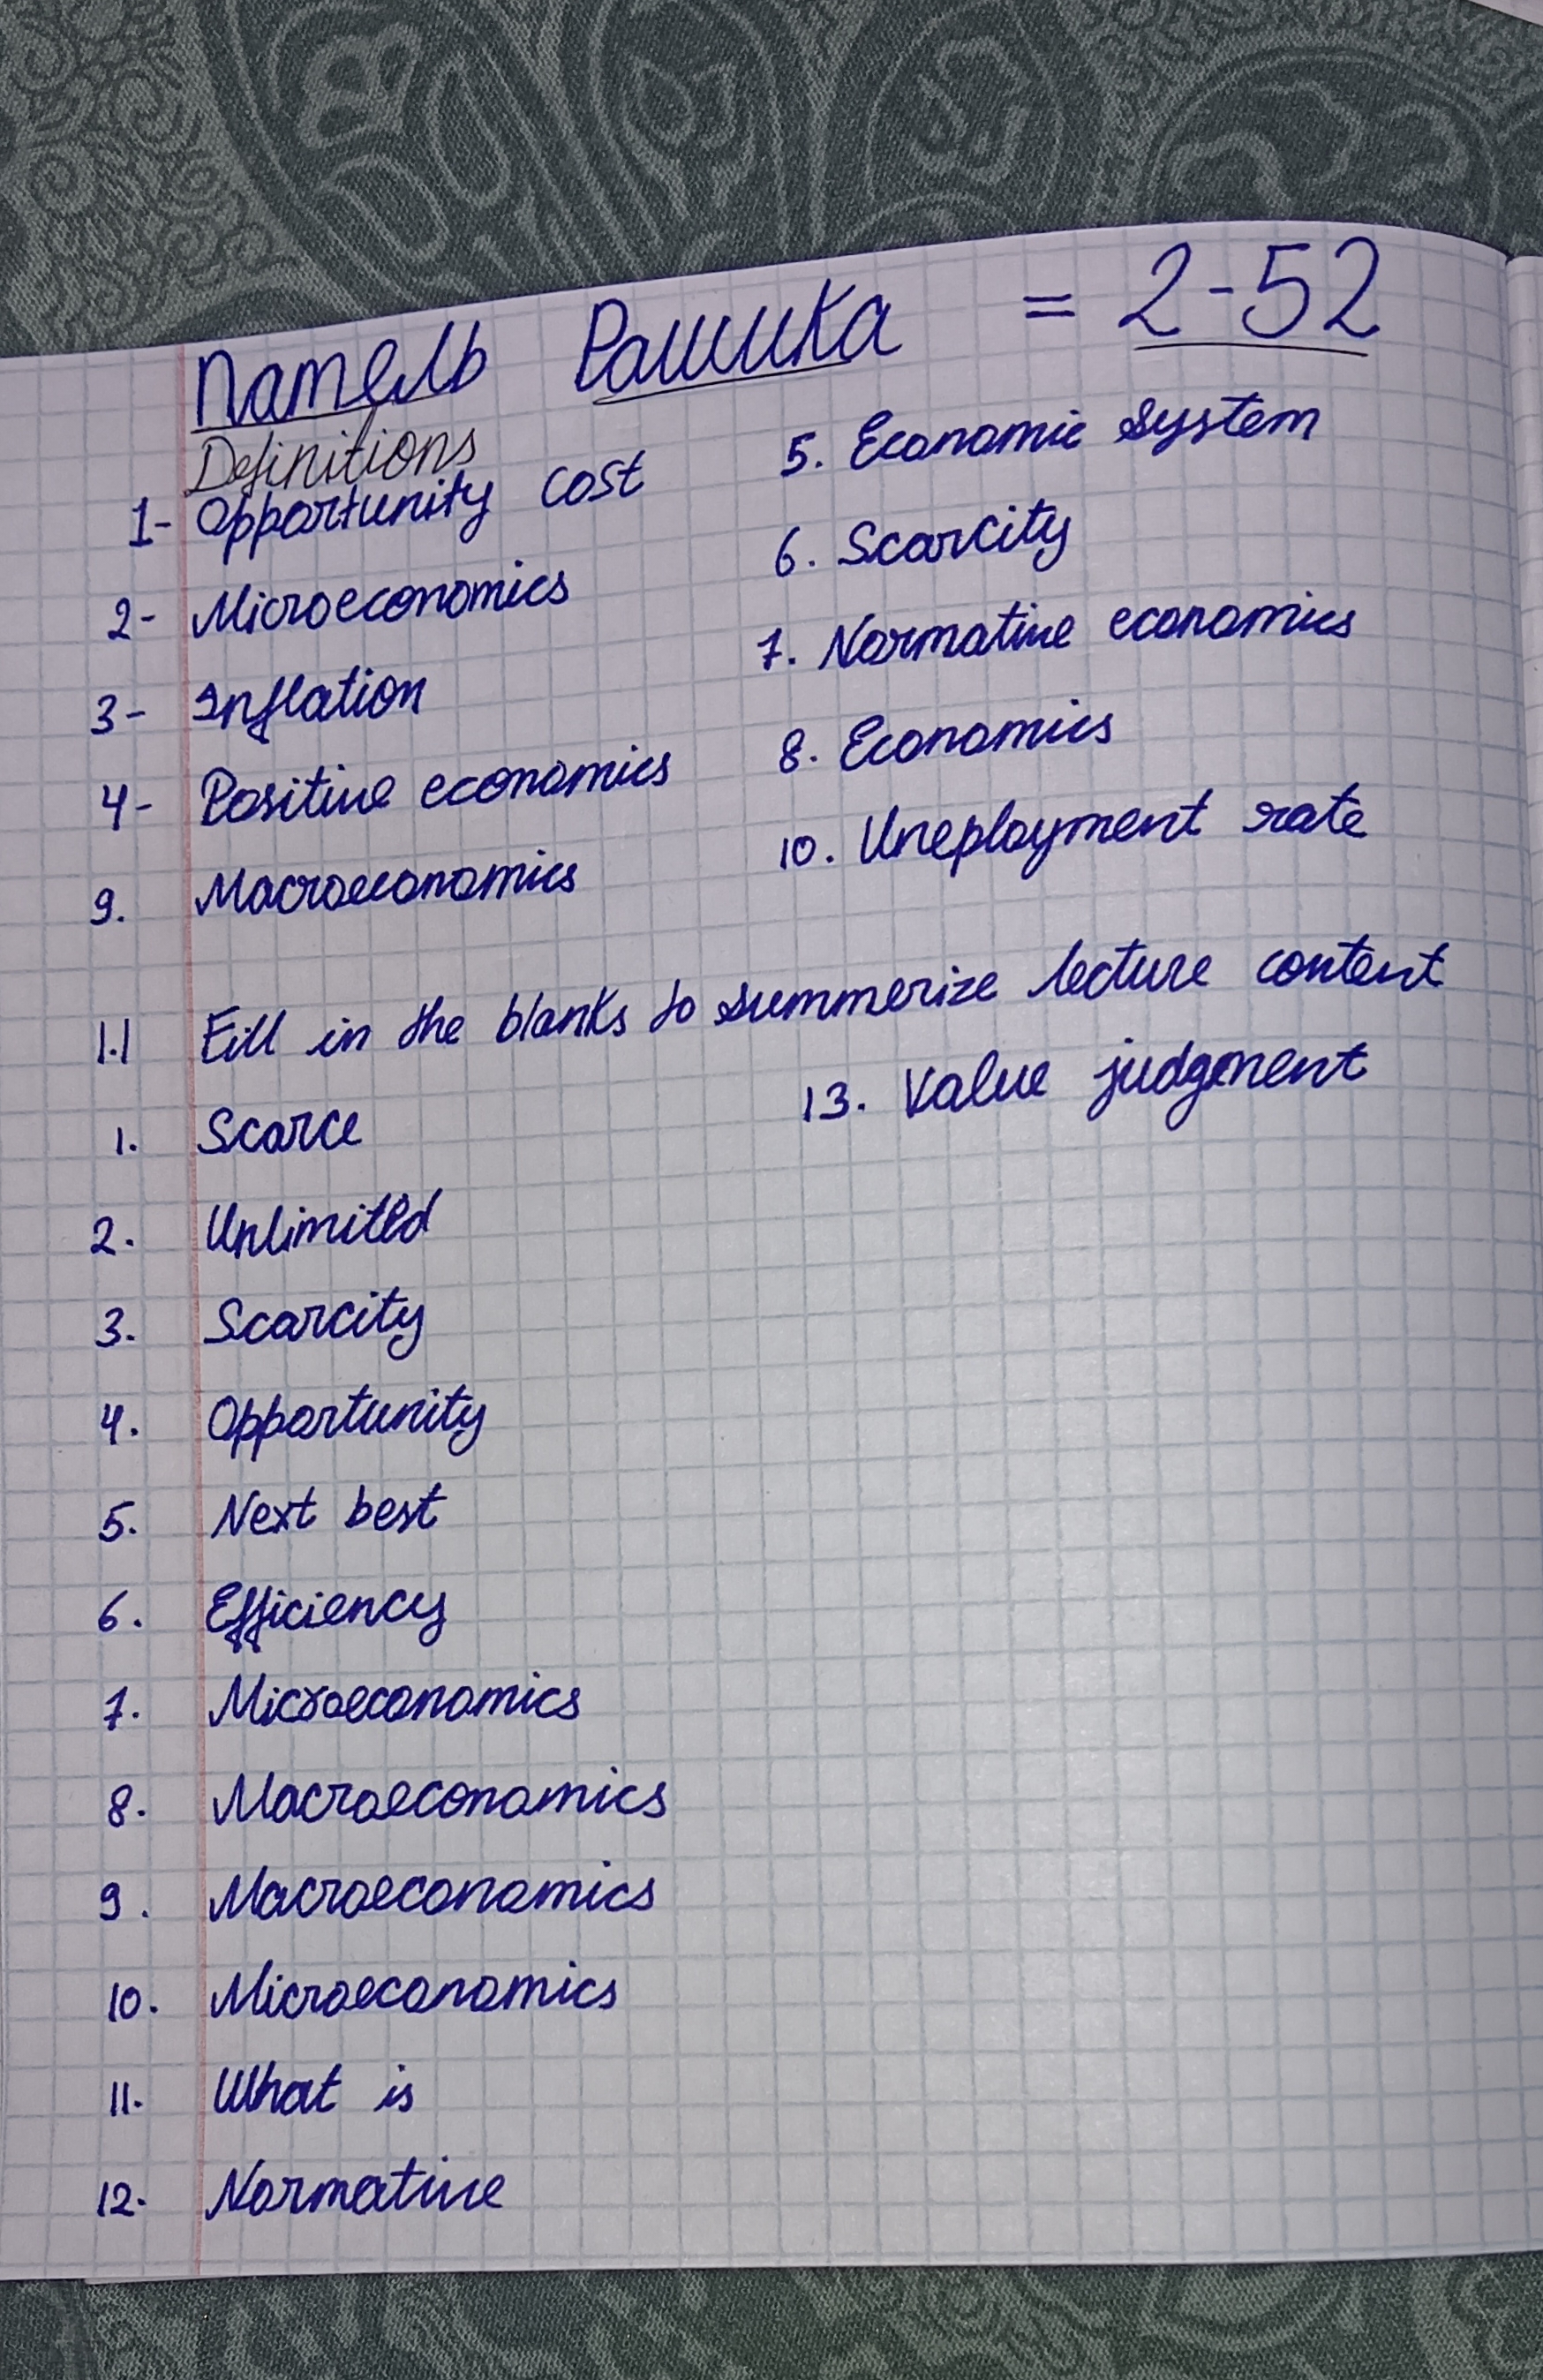 Патель Рашика = 2-52
Definitions
1- Opportunity cost
2- Microeconomics
3- Inflation
4- Positive economics
9. Macroeconomics
5. Economic system
6. Scarcity
7. Normative economics
8. Economics
10. Uneployment rate
1.1 Fill in the blanks to summerize lecture content
1. Scarce
2. Unlimited
3. Scarcity
4. Opportunity
5. Next best
6. Efficiency
7. Microeconomics
8. Macroeconomics
9. Macroeconomics
10. Microeconomics
11. What is
12. Normative
13. Value judgment